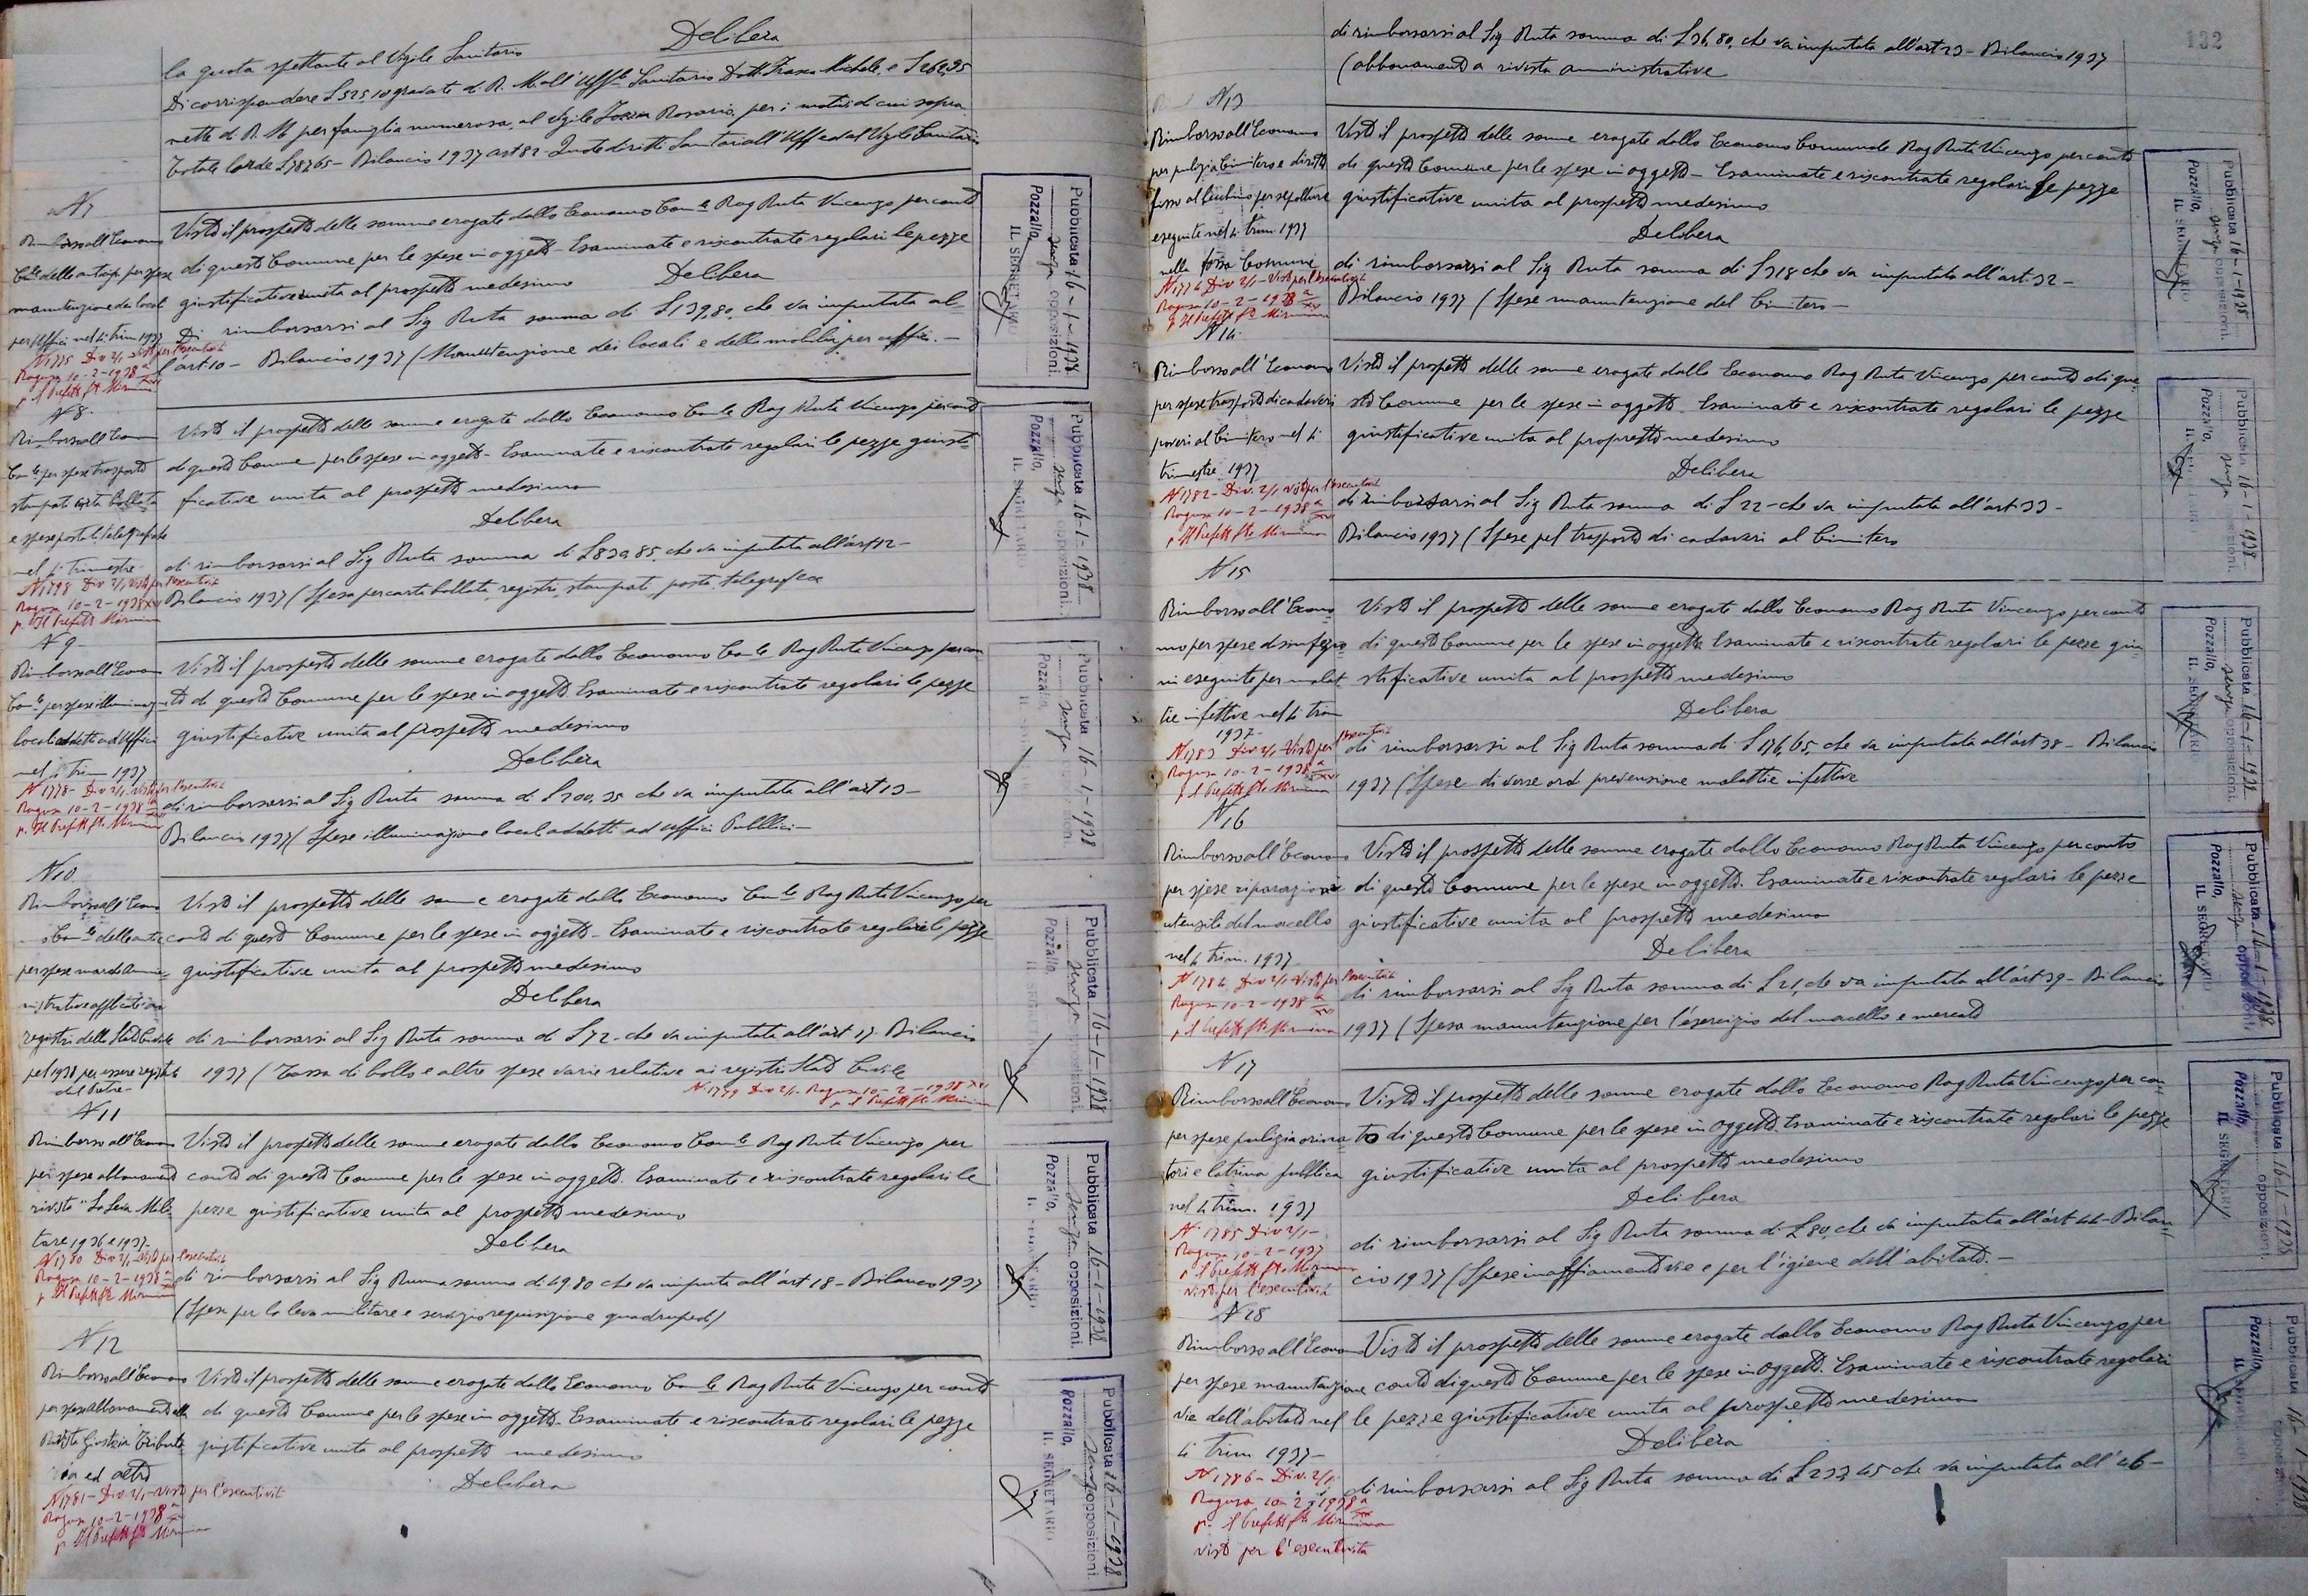 Delibera
la quota spettante al Vigile Sanitario
Di corrispondere £ 525,10 gravate di R. M. all'Uff.le Sanitario Dott. Michele, e £ 262,95
nette di R. M per famiglia numerosa, al Vigile Rosario, per i motivi di cui sopra
Totale lorde £ 787,65 - Bilancio 1937 art 82
N 7
Rimborso all'Economo
manutenzione dei locali
per Uffici nel 4 trim 1937
N 1775 Div 2/1 Visto per l'esecutività
Ragusa 10-2-1938
p. Il Prefetto
Visto il prospetto delle somme erogate dallo Economo Com.le Rag Ruta Vincenzo per conto
di questo Comune per le spese in oggetto Esaminate e riscontrate regolari le pezze
giustificative unita al prospetto medesimo Delibera
Di rimborsarsi al Sig Ruta somma di £ 139,80, che va imputata al-
l'art. 10 - Bilancio 1937 (Manutenzione dei locali e della mobilia per uffici. -
Pubblicata 16-1-1938
senza opposizioni.
Pozzallo,
IL SEGRETARIO
N 8.
Rimborso all'Econ
Com.le per spese trasporto
stampati carta bollata
e spese postali, telegrafiche
nel 4 trimestre
N 1798 Div 2/1 Visto per l'esecutività
Ragusa 10-2-1938 XVI
p. Il Prefetto
Visto il prospetto delle somme erogate dallo Economo Com.le Rag Ruta Vincenzo per conto
di questo Comune per le spese in oggetto - Esaminate e riscontrate regolari le pezze giusti-
ficative unita al prospetto medesimo
Delibera
di rimborsarsi al Sig Ruta somma di £ 839,85, che va imputata all'art 12 -
Bilancio 1937 (Spesa per carta bollata, registri, stampati, posta, telegrafica
Pubblicata 16-1-1938
senza opposizioni.
Pozzallo,
IL SEGRETARIO
N 9 -
Rimborso all'Econo
Com.le per spese illuminaz.
locali addetti ad Uffici
nel 4 Trim 1937
N 1778 - Div 2/1. Visto per l'esecutività
Ragusa 10-2-1938
p. Il Prefetto
Visto il prospetto delle somme erogate dallo Economo Com.le Rag Ruta Vincenzo per con
to di questo Comune per le spese in oggetto Esaminate e riscontrate regolari le pezze
giustificative unita al prospetto medesimo
Delibera
di rimborsarsi al Sig Ruta somma di £ 200,35 che va imputata all'art 13 -
Bilancio 1937 (Spese illuminazione locali addetti ad Uffici Pubblici -
Pubblicata 16-1-1938
senza
Pozzallo,
N 10
Rimborso all'Econo
registri dello Stato Civile
pel 1938 per essere
dal Pretore -
Visto il prospetto delle somme erogate dallo Economo Com.le Rag Ruta Vincenzo per
conto di questo Comune per le spese in oggetto - Esaminate e riscontrate regolari le pezze
giustificative unita al prospetto medesimo
Delibera
di rimborsarsi al Sig Ruta somma di £ 72 - che va imputata all'art 17 - Bilancio
1937 (Tassa di bollo e altre spese varie relative ai registri Stato Civile
N 1779 Div 2/1 - Ragusa 10-2-1938 XVI
p. il Prefetto
Pubblicata 16-1-1938
senza opposizioni.
Pozzallo,
N 11
Rimborso all'Econom
per spese abbonamento
rivista "La Leva Mili-
tare 1936 e 1937 -
N 1780 Div 2/1 - Visto per l'esecutività
Ragusa 10-2-1938
p. Il Prefetto
Visto il prospetto delle somme erogate dallo Economo Com.le Rag Ruta Vincenzo per
conto di questo Comune per le spese in oggetto. Esaminate e riscontrate regolari le
pezze giustificative unita al prospetto medesimo
Delibera
di rimborsarsi al Sig somma di 49,80 che va imputa all'art 18 - Bilancio 1937
(Spesa per la leva militare e servizio requisizione quadrupedi)
Pubblicata 16-1-1938
senza opposizioni.
Pozzallo,
N 12
Rimborso all'Economo
per spese abbonamento alla
Rivista Giustizia Tributa
ria ed altro
N 1781 - Div 2/1 - visto per l'esecutività
Ragusa 10-2-1938
p. Il Prefetto
Visto il prospetto delle somme erogate dallo Economo Com.le Rag Ruta Vincenzo per conto
di questo Comune per le spese in oggetto. Esaminate e riscontrate regolari le pezze
giustificative unita al prospetto medesimo
Delibera
Pubblicata 16-1-1938
senza opposizioni.
Pozzallo,
IL SEGRETARIO
132
di rimborsarsi al Sig Ruta somma di £ 36,80, che va imputata all'art 23 - Bilancio 1937
(abbonamento a rivista amministrative
N 13
Rimborso all'Economo
per pulizia Cimitero e diritto
fisso al becchino per sepolture
eseguite nel 4 trim 1937
nella fossa Comune
N 1776 Div 2/1 - Visto per l'esecutività
Ragusa 10-2-1938
p. Il Prefetto
Visto il prospetto delle somme erogate dallo Economo Comunale Rag Ruta Vincenzo per conto
di questo Comune per le spese in oggetto - Esaminate e riscontrate regolari le pezze
giustificative unita al prospetto medesimo
Delibera
di rimborsarsi al Sig Ruta somma di £ 318 che va imputata all'art. 32 -
Bilancio 1937 (Spese manutenzione del Cimitero -
Pubblicata 16-1-1938
senza opposizioni.
Pozzallo,
IL SEGRETARIO
N 14.
Rimborso all'Economo
per spese trasporto di cadaveri
poveri al Cimitero nel 4
trimestre 1937
N 1782 - Div. 2/1 visto per l'esecutività
Ragusa 10-2-1938
p. Il Prefetto
Visto il prospetto delle somme erogate dallo Economo Rag Ruta Vincenzo per conto di que
sto Comune per le spese in oggetto. Esaminate e riscontrate regolari le pezze
giustificative unita al prospetto medesimo
Delibera
di rimborsarsi al Sig Ruta somma di £ 22 - che va imputata all'art. 33 -
Bilancio 1937 (Spese pel trasporto di cadaveri al Cimitero
Pubblicata 16-1-1938
senza opposizioni.
Pozzallo,
N 15
Rimborso all'Econo-
mo per spese disinfezio
ni eseguite per malat-
tie infettive nel 4 trim
1937 -
N 1783 Div 2/1 Visto per l'esecutività
Ragusa 10-2-1938
p. il Prefetto
Visto il prospetto delle somme erogate dallo Economo Rag Ruta Vincenzo per conto
di questo Comune per le spese in oggetto Esaminate e riscontrate regolari le pezze giu-
stificative unita al prospetto medesimo
Delibera
di rimborsarsi al Sig Ruta somma di £ 176,65, che va imputata all'art 38 - Bilancio
1937 (Spese diverse ord prevenzione malattie infettive
Pubblicata 16-1-1938
senza opposizioni.
Pozzallo,
IL SEGRETARIO
N 16
Rimborso all'Economo
per spese riparazioni
utensile del macello
nel 4 trim. 1937
N 1784 Div 2/1 Visto per l'esecutività
Ragusa 10-2-1938
p. il Prefetto
Visto il prospetto delle somme erogate dallo Economo Rag Ruta Vincenzo per conto
di questo Comune per le spese in oggetto. Esaminate e riscontrate regolari le pezze
giustificative unita al prospetto medesimo
Delibera
di rimborsarsi al Sig Ruta somma di £ 21, che va imputata all'art 39 - Bilancio
1937 (Spesa manutenzione per l'esercizio del macello e mercato
Pubblicata 16-1-1938
senza
Pozzallo,
IL SEGRETARIO
N 17
Rimborso all'Economo
per spese pulizia orina
tori e latrina pubblica
nel 4 trim. 1937
N. 1785 Div 2/1 -
Ragusa 10-2-1937
p. il Prefetto
visto per l'esecutività
Visto il prospetto delle somme erogate dallo Economo Rag Ruta Vincenzo per con-
to di questo Comune per le spese in oggetto. Esaminate e riscontrate regolari le pezze
giustificative unita al prospetto medesimo
Delibera
di rimborsarsi al Sig Ruta somma di £ 80, che va imputata all'art 44 - Bilan-
cio 1937 (Spese inaffiamento vie e per l'igiene dell'abitato. -
Pubblicata 16-1-1938
opposizioni.
Pozzallo,
IL SEGRETARIO
N 18
Rimborso all'Econom
per spese manutenzione
vie dell'abitato nel
4 Trim 1937 -
N 1786 - Div. 2/1.
Ragusa 10-2-1938
p. il Prefetto
visto per l'esecutività
Visto il prospetto delle somme erogate dallo Economo Rag Ruta Vincenzo per
conto di questo Comune per le spese in oggetto. Esaminate e riscontrate regolari
le pezze giustificative unita al prospetto medesimo
Delibera
di rimborsarsi al Sig Ruta somma di £ 233,45 che va imputata all'46 -
Pubblicata 16-1-1938
Pozzallo,